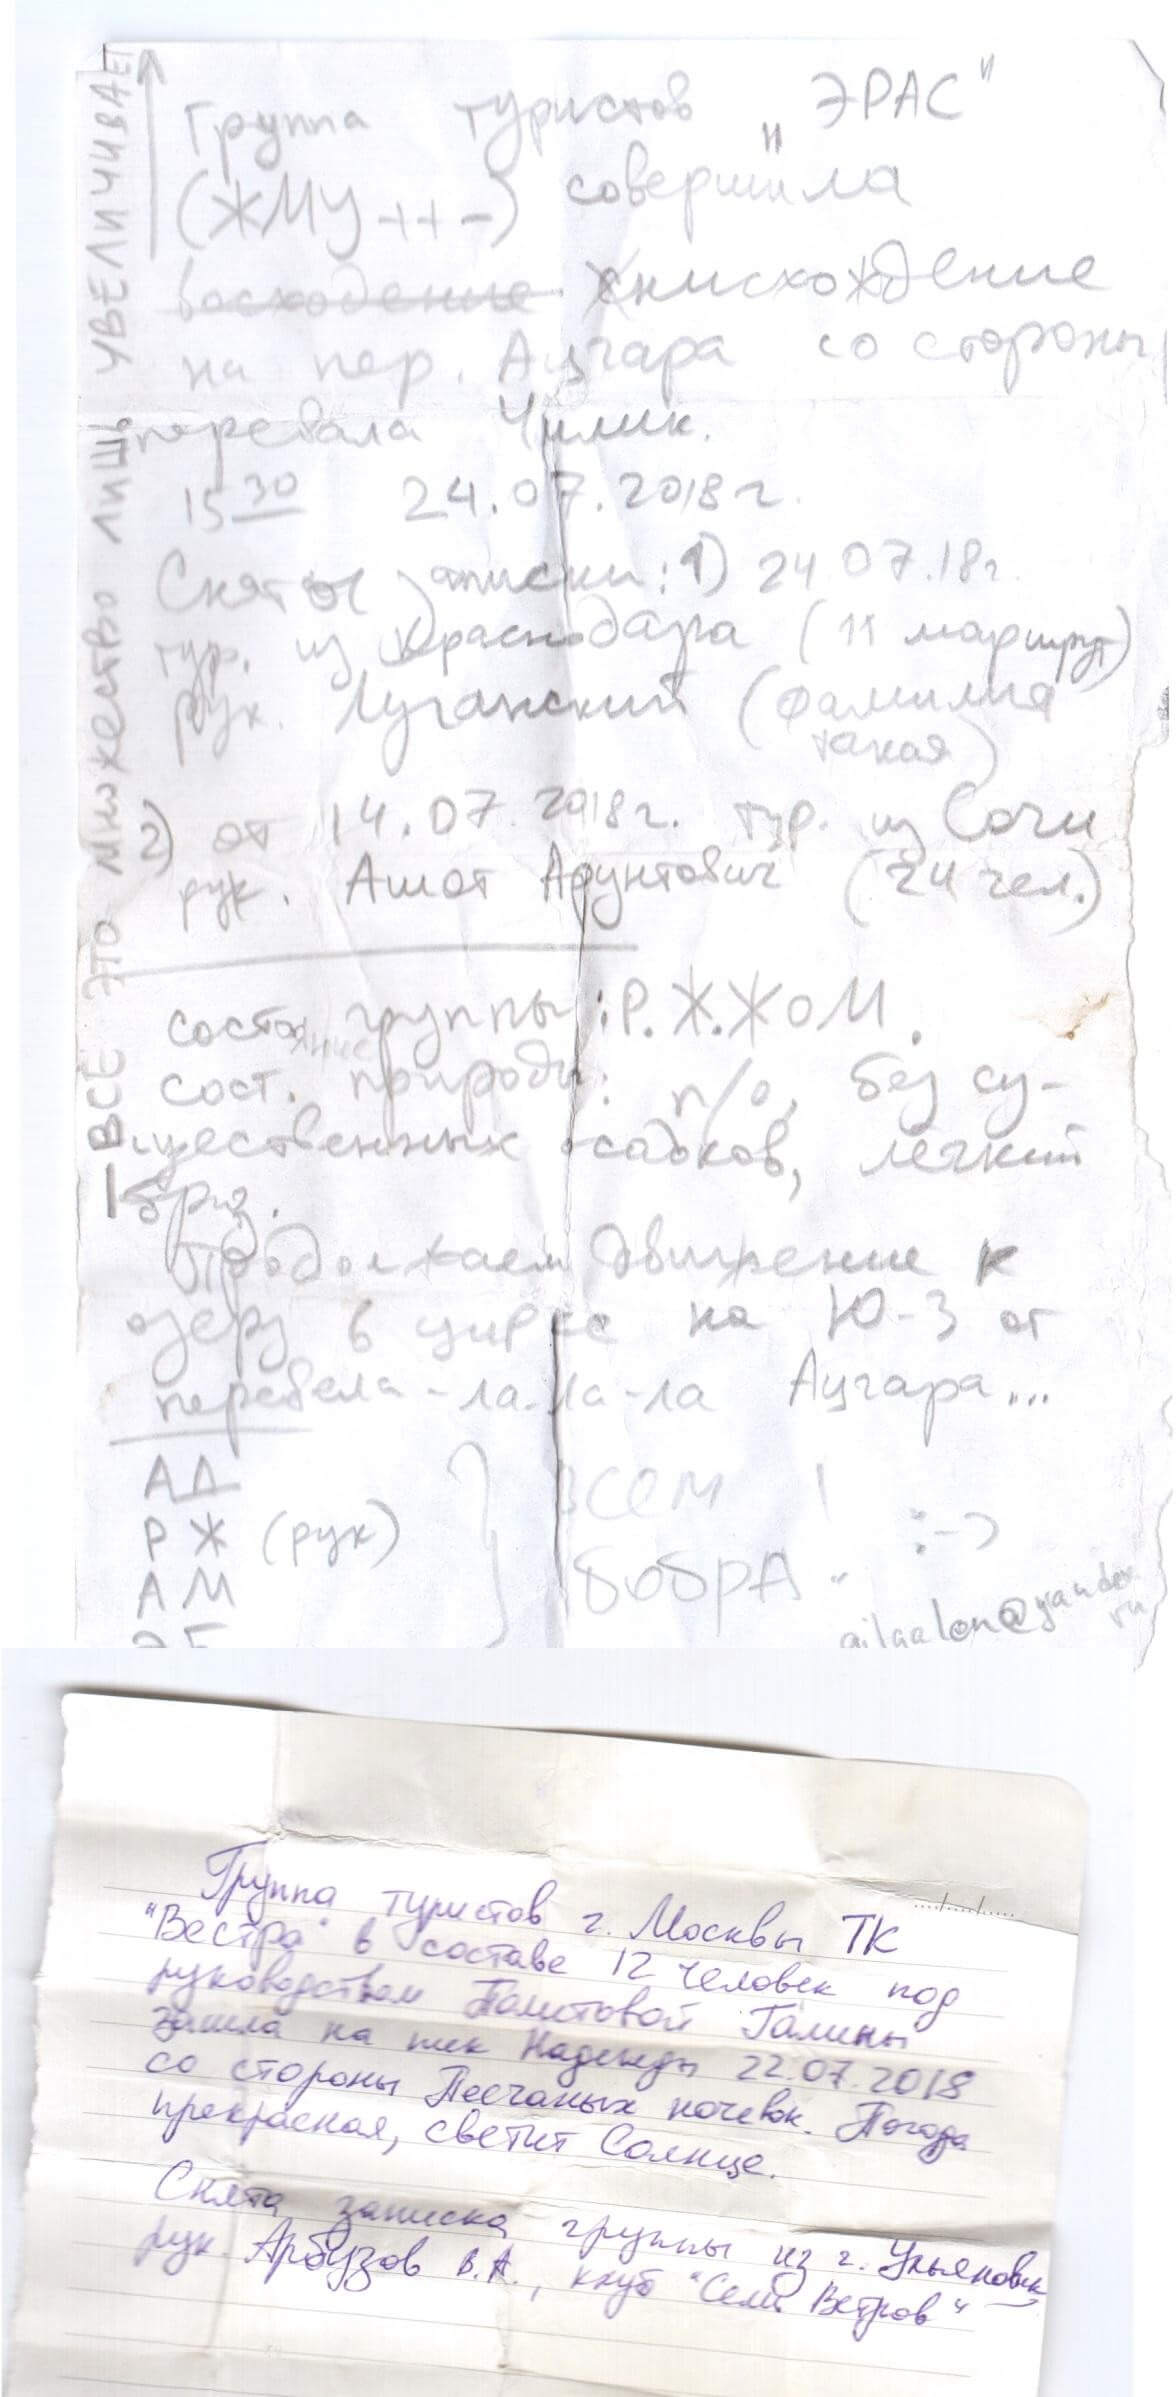 Группа туристов „ЭРАС"
(ЖМУ++-) совершила
восхождение снисхождение
на пер. Ацгара со стороны
перевала Чилик.
15 30 24.07.2018г.
Сняты записки: 1) 24.07.18г.
тур. из Краснодара (11 маршрут)
рук. Луганский (фамилия
такая)
2) от 14.07.2018г. тур. из Сочи
рук. Ашот Арунтович (24 чел.)
состояние группы: Р.Ж.ЖоМ.
сост. природы: п/о, без су-
щественных осадков, легкий
бриз.
Продолжаем движение к
озеру в цирке на Ю-З от
перевала-ла-ла-ла Ацгара...
АД
РЖ (рук)
АМ
ВСЕМ !
бобрА :-)
ВСЁ ЭТО МНОЖЕСТВО ЛИШЬ УВЕЛИЧИВАЕТ
Группа туристов г. Москвы ТК
"Вестра" в составе 12 человек под
руководством Галины
зашла на пик Надежды 22.07.2018
со стороны Песчаных ночевок. Погода
прекрасная, светит Солнце.
Снята записка группы из г. Ульяновск
рук. Арбузов В.А., клуб "Семь Ветров"